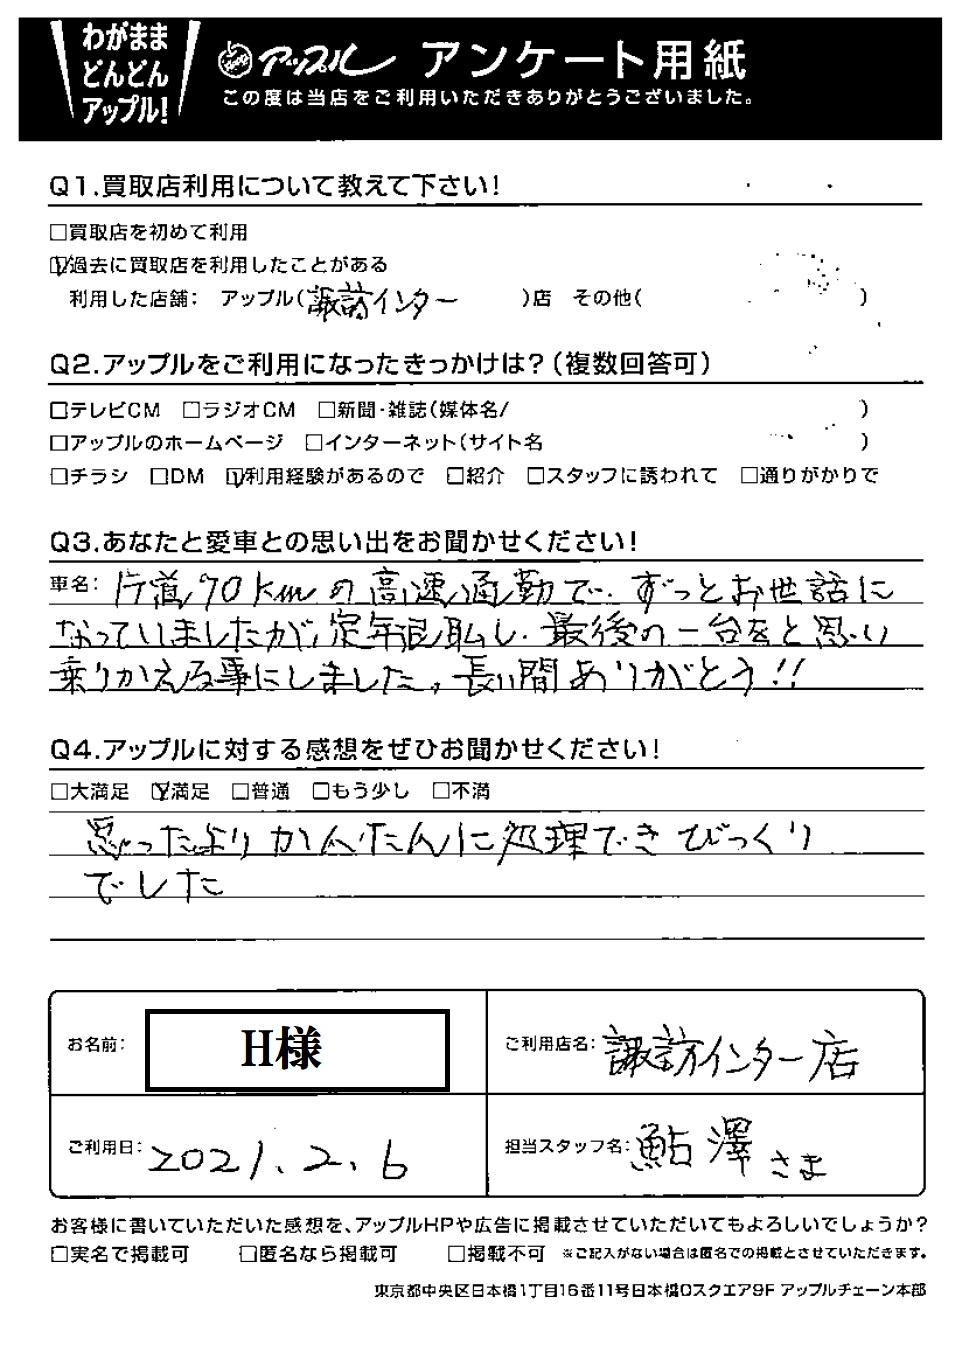 わがまま
どんどん
アップル!
アップル アンケート用紙
この度は当店をご利用いただきありがとうございました。
Q1.買取店利用について教えて下さい!
□買取店を初めて利用
☑過去に買取店を利用したことがある
利用した店舗: アップル(諏訪インター )店 その他( )
Q2.アップルをご利用になったきっかけは?(複数回答可)
□テレビCM □ラジオCM □新聞・雑誌(媒体名/ )
□アップルのホームページ □インターネット(サイト名 )
□チラシ □DM ☑利用経験があるので □紹介 □スタッフに誘われて □通りがかりで
Q3.あなたと愛車との思い出をお聞かせください!
車名: 片道90kmの高速通勤で、ずっとお世話に
なっていましたが、定年退職し、最後の一台をと思い
乗りかえる事にしました。長い間ありがとう!!
Q4.アップルに対する感想をぜひお聞かせください!
□大満足 ☑満足 □普通 □もう少し □不満
思ったよりかんたんに処理できびっくり
でした
お名前: H様
ご利用店名: 諏訪インター店
ご利用日: 2021.2.6
担当スタッフ名: 鮎澤さま
お客様に書いていただいた感想を、アップルHPや広告に掲載させていただいてもよろしいでしょうか?
□実名で掲載可 □匿名なら掲載可 □掲載不可 ※ご記入がない場合は匿名での掲載とさせていただきます。
東京都中央区日本橋1丁目16番11号日本橋Dスクエア9F アップルチェーン本部